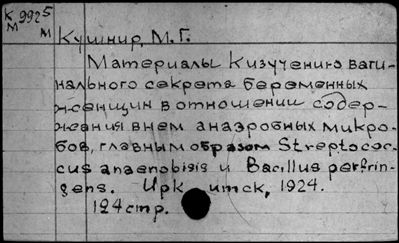 К 9925
М м
Кушнир, М. Г.
Материалы К изучению ваги-
нального секрета беременных
женщин в отношении содер-
жания в нем анаэробных микро-
бов, главным образом Streptococ-
cus anaenobisis и Bacillus perfrin-
gens. Ирк утск, 1924.
124 стр.